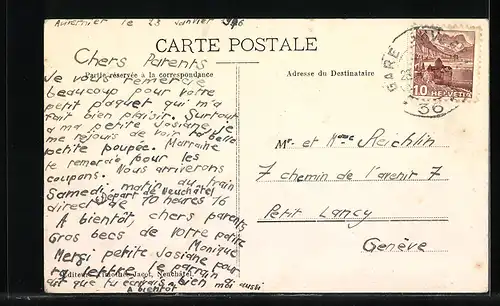 Auvernier le 23 janvier 1946
CARTE POSTALE
Chers Parents
Partie réservée à la correspondance
Adresse du Destinataire
Je vous remercie
beaucoup pour votre
petit paquet qui m'a
fait bien plaisir. Surtout
a ma petite Josiane je
me rejouis de voir la belle
petite poupée. Marraine
te remercie pour les
coupons. Nous arriverons
Samedi matin du train
(Depart de Neuchâtel)
direct de 10 heures 16
A bientôt, chers parents
Gros becs de votre petite
Monique
Merçi petite Josiane pour
ta lettre, le parrain
dit que tu écrivais bien moi aussi
A bientôt
Editeur Timothée Jacot, Neuchâtel
GARE
36
10 HELVETIA
Mr. et Mme Reichlin
7 chemin de l'avenir 7
Petit Lancy
Genève